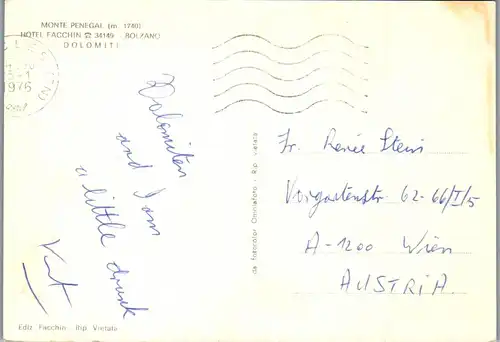 MONTE PENEGAL (m. 1740)
HOTEL FACCHIN ☎ 34149 - BOLZANO
DOLOMITI
1976
Dolomiten
and I am
a little drunk
Kurt
da fotocolor Omniafoto - Rip. vietata
Fr. Renée Stein
Vorgartenstr. 62-66/I/5
A-1200 Wien
AUSTRIA.
Ediz. Facchin - Rip. Vietata